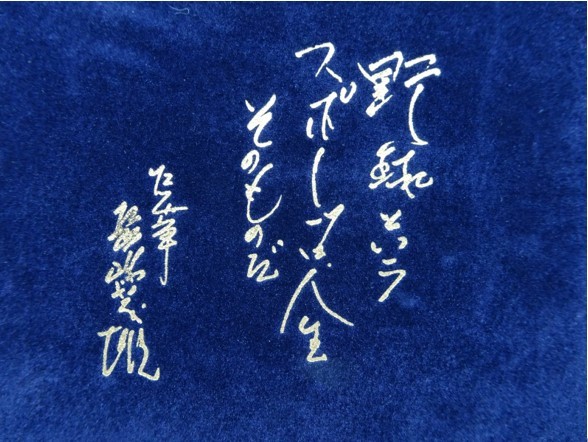 野球という
スポーツは人生
そのものだ
長嶋茂雄